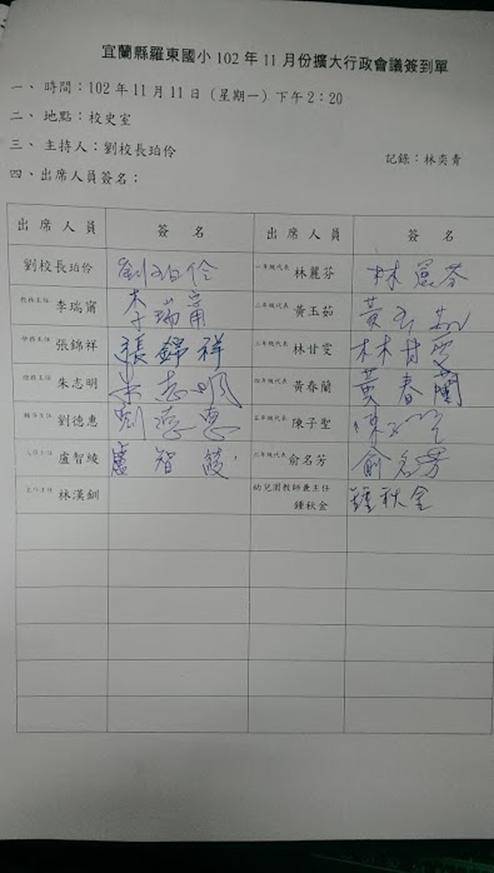 宜蘭縣羅東國小102年11月份擴大行政會議簽到單
一、時間：102年11月11日（星期一）下午2：20
二、地點：校史室
三、主持人：劉校長珀伶 記錄：林奕青
四、出席人員簽名：
出席人員 簽名 出席人員 簽名
劉校長珀伶 劉珀伶 一年級代表 林麗芬 林麗芬
教務主任 李瑞甯 李瑞甯 二年級代表 黃玉茹 黃玉茹
學務主任 張錦祥 張錦祥 三年級代表 林甘雯 林甘雯
總務主任 朱志明 朱志明 四年級代表 黃春蘭 黃春蘭
輔導主任 劉德惠 劉德惠 五年級代表 陳子聖 陳子聖
人事主任 盧智綾 盧智綾 六年級代表 俞名芳 俞名芳
主計主任 林漢釧 幼兒園教師兼主任
鍾秋金 鍾秋金